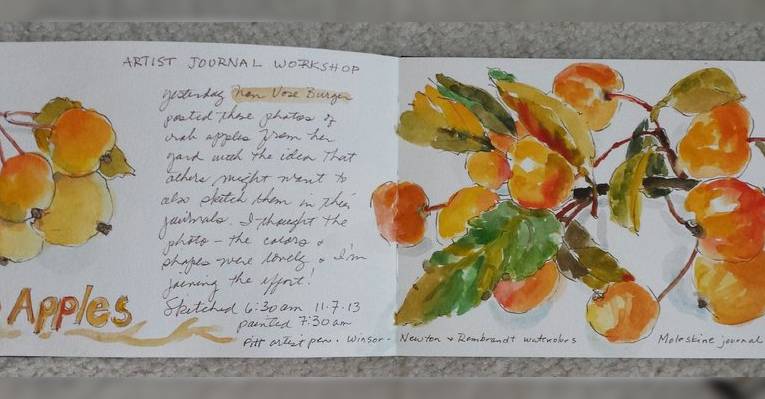 ARTIST JOURNAL WORKSHOP
yesterday Nan Vose Burger
posted those photos of
crab apples from her
yard with the idea that
others might want to
also sketch them in their
journals. I thought the
photo - the colors &
shapes were lovely & I'm
joining the effort!
Apples
Sketched 6:30am 11.7.13
painted 7:30am
Pitt artist pen. Winsor - Newton & Rembrandt watercolors
Moleskine journal